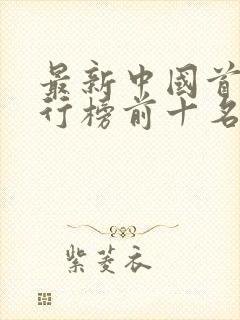 最新中国首
行榜前十名
紫菱衣